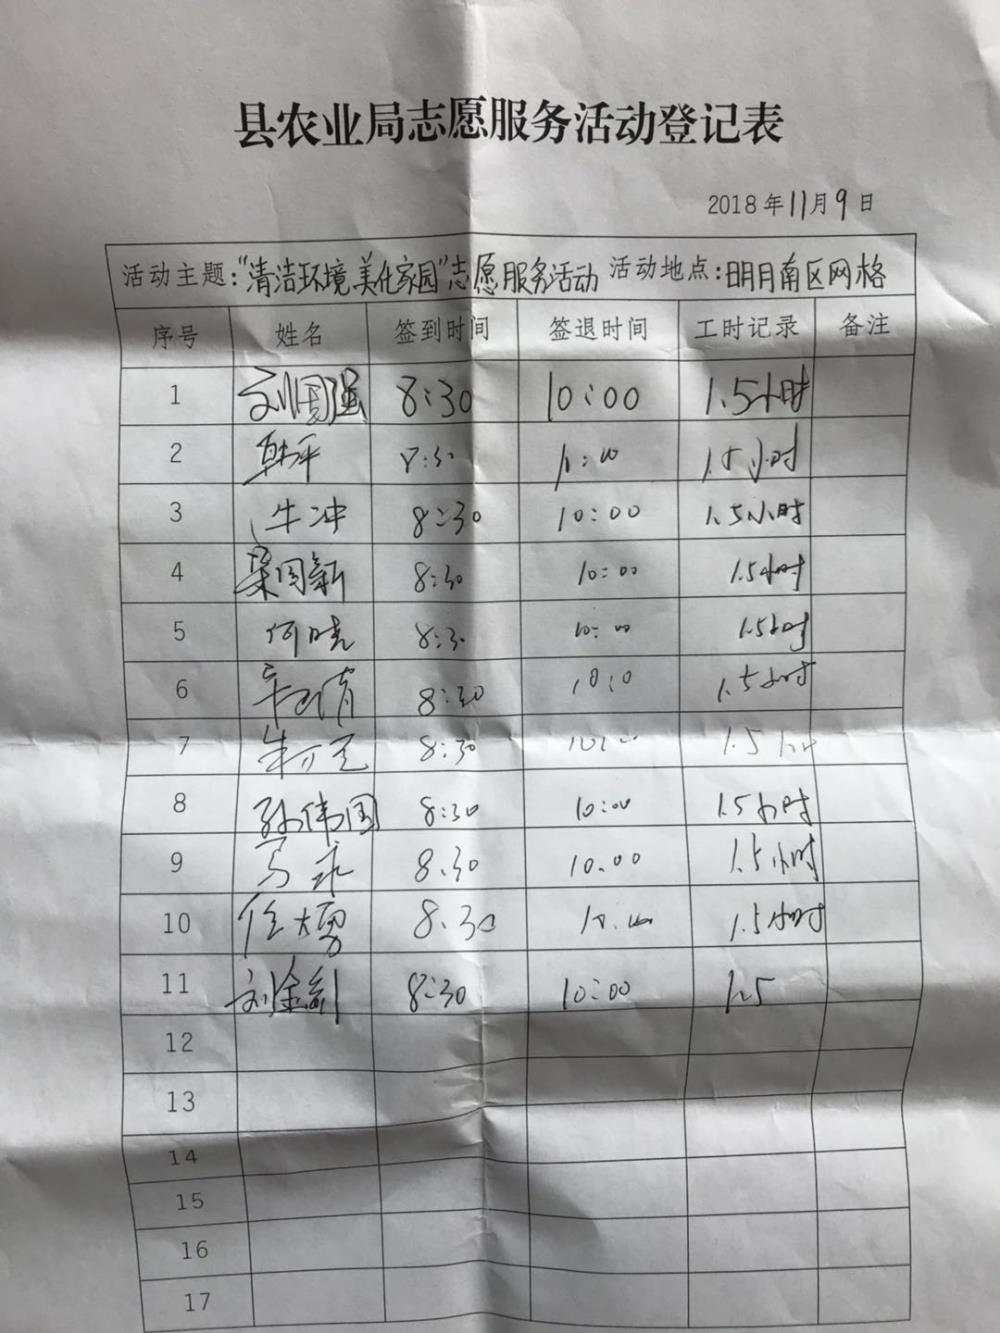 县农业局志愿服务活动登记表
2018年11月9日
活动主题:“清洁环境美化家园”志愿服务活动 活动地点:明月南区网格
序号 姓名 签到时间 签退时间 工时记录 备注
1 刘国强 8:30 10:00 1.5小时
2 韩平 8:30 10:00 1.5小时
3 牛冲 8:30 10:00 1.5小时
4 梁国新 8:30 10:00 1.5小时
5 何晓 8:30 10:00 1.5小时
6 8:30 10:00 1.5小时
7 8:30 10:00 1.5小时
8 孙伟国 8:30 10:00 1.5小时
9 8.30 10:00 1.5小时
10 任大勇 8.30 10:00 1.5小时
11 刘金利 8:30 10:00 1.5
12
13
14
15
16
17